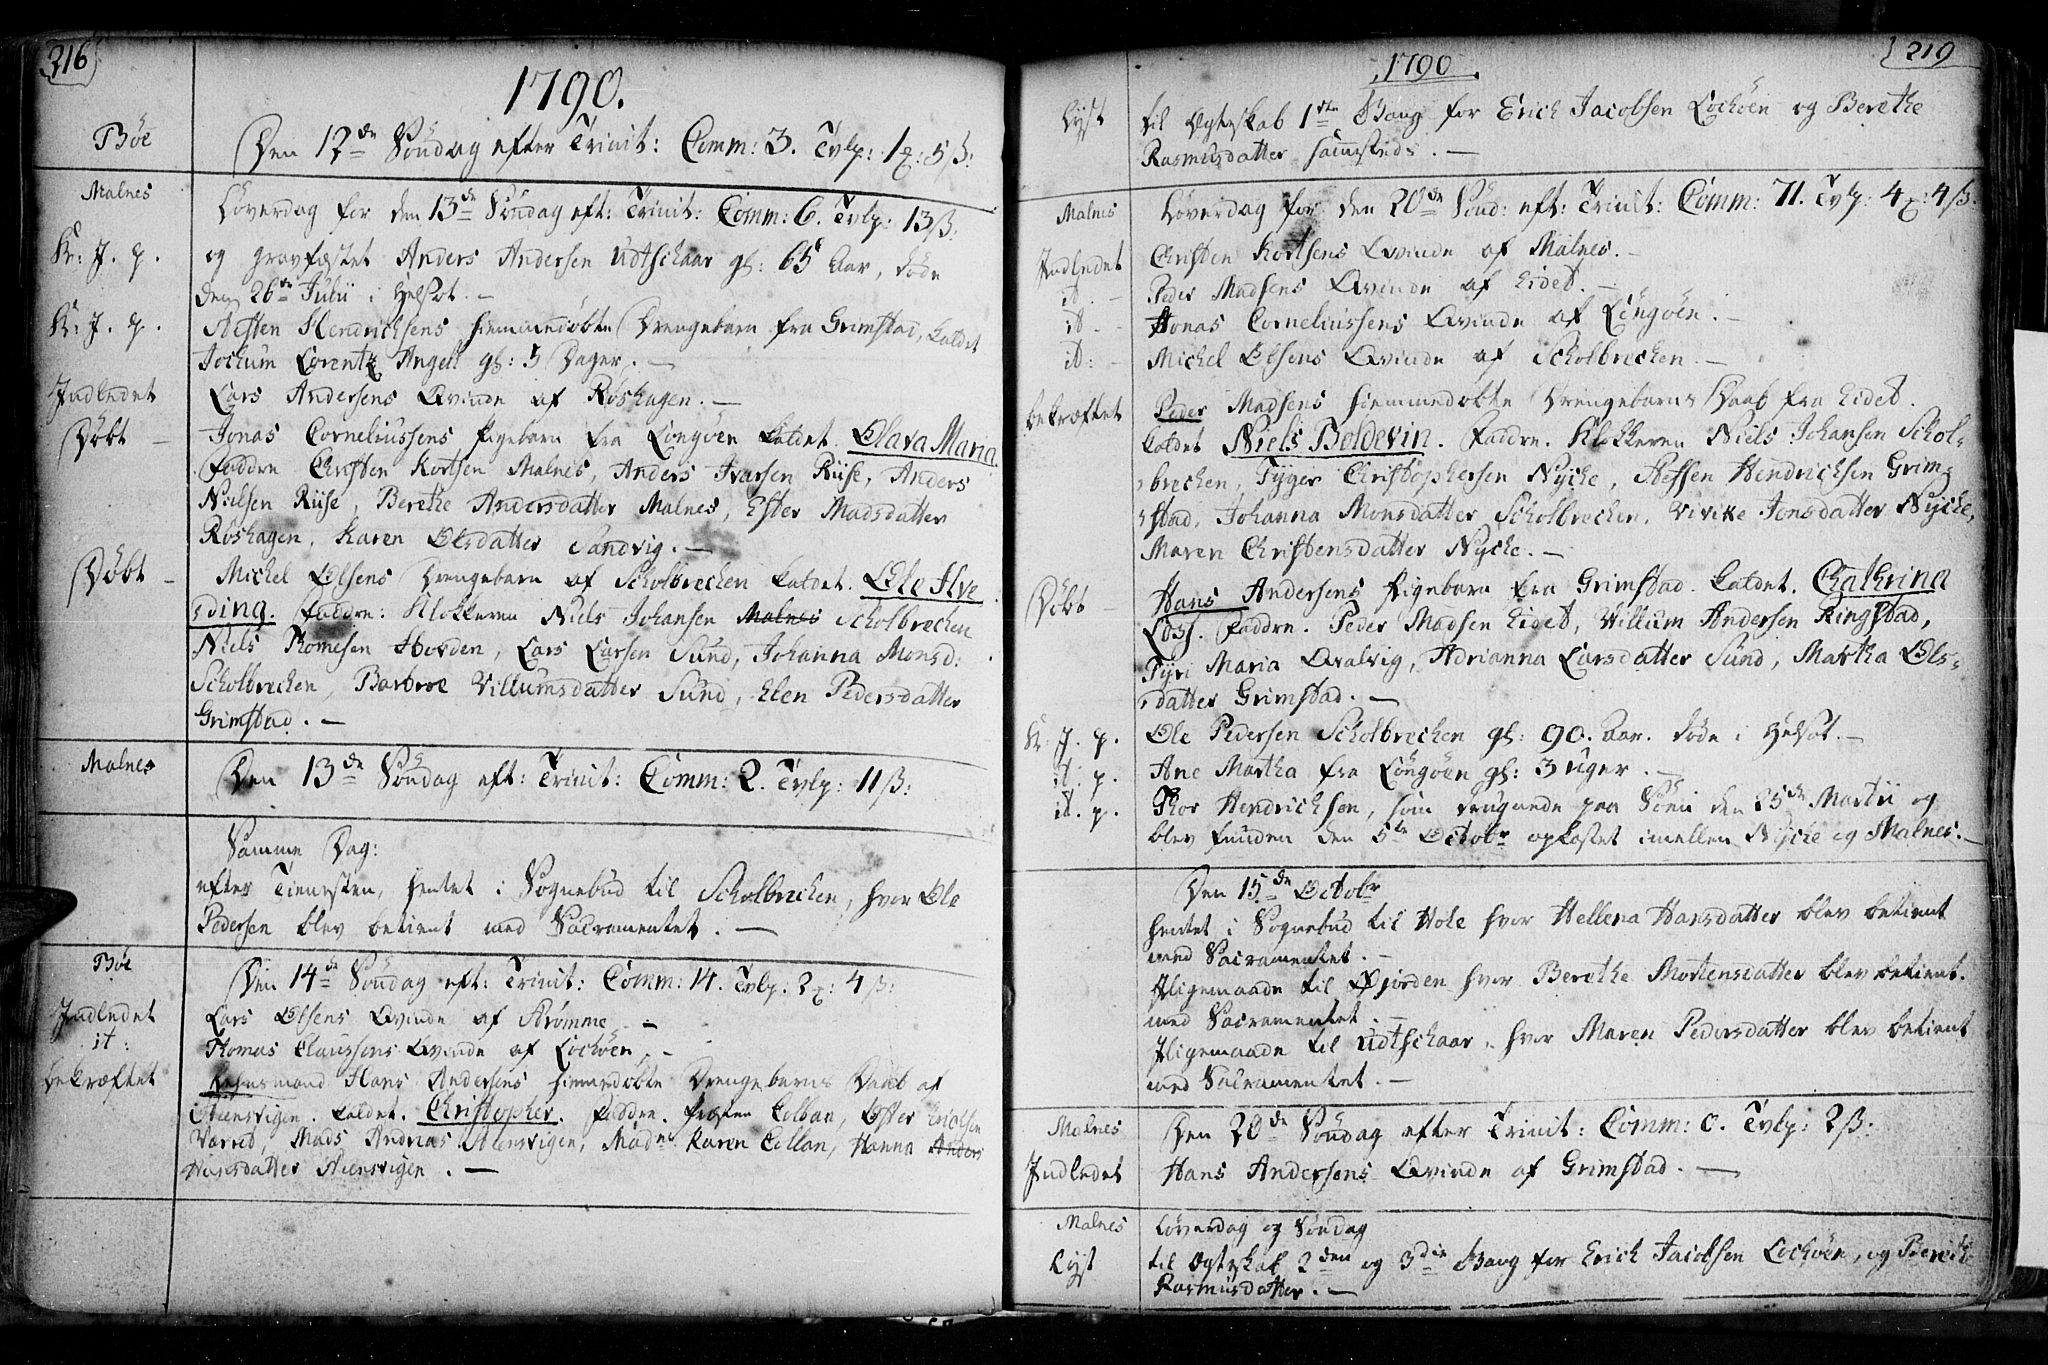 316
1790.
Bøe
Den 12de Søndag efter Trinit: Comm: 3. Tvlp: 1 : 5 ß:
Malnes
Løverdag for den 13de Søndag eft: Trinit: Comm: 6. Tvlp: 13 ß:
K: J. p.
og gravfæstet Anders Andersen Udtschaar gl: 65 Aar, døde
den 26de Julii i Helsot. —
K: J. p.
Steffen Hendrichsens hiemmedøbte Drengebarn fra Grimstad, kaldet
Jochum Lorentz Angell gl: 5 Dager. —
Indledet
Lars Andersens Qvinde af Røshagen. —
Døbt —
Jonas Corneliussens Pigebarn fra Löngöen kaldet. Olava Maria
Faddre Christen Kortsen Malnes, Anders Ivarsen Riise, Anders
Nielsen Riise, Berethe Andersdatter Malnes, Ester Madsdatter
Røshagen, Karen Olsdatter Sandvig. —
Døbt —
Michel Olsens Drengebarn af Scholbrechen kaldet. Ole Hve
ding. Faddre: Klokkeren Niels Johansen Malnes Scholbrechen
Niels Thomesen Hovden, Lars Larsen Sund, Johanna Monsd:
Scholbrechen, Barbroe Villumsdatter Sund, Elen Pedersdatter
Grimstad. —
Malnes
Den 13de Søndag eft: Trinit: Comm: 2. Tvlp: 11 ß:
Samme Dag:
efter Tienesten, hentet i Sognebud til Scholbrechen, hvor Ole
Pedersen blev betient med Sacramentet. —
Bøe
Den 14de Søndag eft: Trinit: Comm: 14. Tvlp: 2 : 4 ß:
Indledet
Lars Olsens Qvinde af Strømme. —
it:
Thomas Claussens Qvinde af Lochöen. —
bekræftet
Lehnsmand Hans Andersens hiemmedøbte Drengebarns Daab af
Steensvigen. kaldet. Christopher. Faddre. Colban,
Mads Andreas Steensvigen, Karen Colban, Hanna Anders
Hansdatter Steensvigen. —
219
1790.
Lyst
til Ægteskab 1ste Gang for Erich Jacobsen Lochöen og Berethe
Rasmusdatter sammesteds. —
Malnes
Løverdag for den 20de Sönd: eft: Trinit: Comm: 71. Tvlp: 4 : 4 ß.
Indledet
Christen Kortsens Qvinde af Malnes. —
it. —
Peder Madsens Qvinde af Eidet. —
it. —
Jonas Corneliussens Qvinde af Löngöen. —
it: —
Michel Olsens Qvinde af Scholbrechen. —
bekræftet
Peder Madsens hiemmedøbte Drengebarns Daab fra Eidet.
kaldet Niels Boldevin. Faddre. Klokkeren Niels Johansen Schol-
brechen, Tyger Christophersen Nycke, Steffen Hendrichsen Grim-
stad, Johanna Monsdatter Scholbrechen, Vivike Jonsdatter Nycke,
Maren Christensdatter Nycke. —
Døbt —
Hans Andersens Pigebarn fra Grimstad kaldet. Cathrina
Faddre. Peder Madsen Eidet, Villum Andersen Ringstad,
Tyri Maria Qvalvig, Adrianna Larsdatter Sund, Martha Ols-
datter Grimstad. —
K: J. p.
Ole Pedersen Scholbrechen gl: 90. Aar. døde i Helsot. —
it. p.
Ane Martha fra Löngöen gl: 3 Uger. —
it. p.
Thor Hendrichsen, som druknede paa Söen den 25de Martii og
blev funden den 5te Octobr opkastet imellem Nycke og Malnes. —
Den 15de Octobr
hentet i Sognebud til Hole hvor Hellena Hansdatter blev betient
med Sacramentet. —
Iligemaade til Fjorden hvor Berethe Mortensdatter blev betient.
med Sacramentet. —
Iligemaade til Udtschaar, hvor Maren Pedersdatter blev betient
med Sacramentet. —
Malnes
Den 20de Søndag efter Trinit: Comm: 0. Tvlp: 2 ß:
Indledet
Hans Andersens Qvinde af Grimstad. —
Malnes
Løverdag og Søndag
Lyst
til Ægteskab 2den og 3die Gang for Erich Jacobsen Lochöen, og Berethe
Rasmusdatter. —